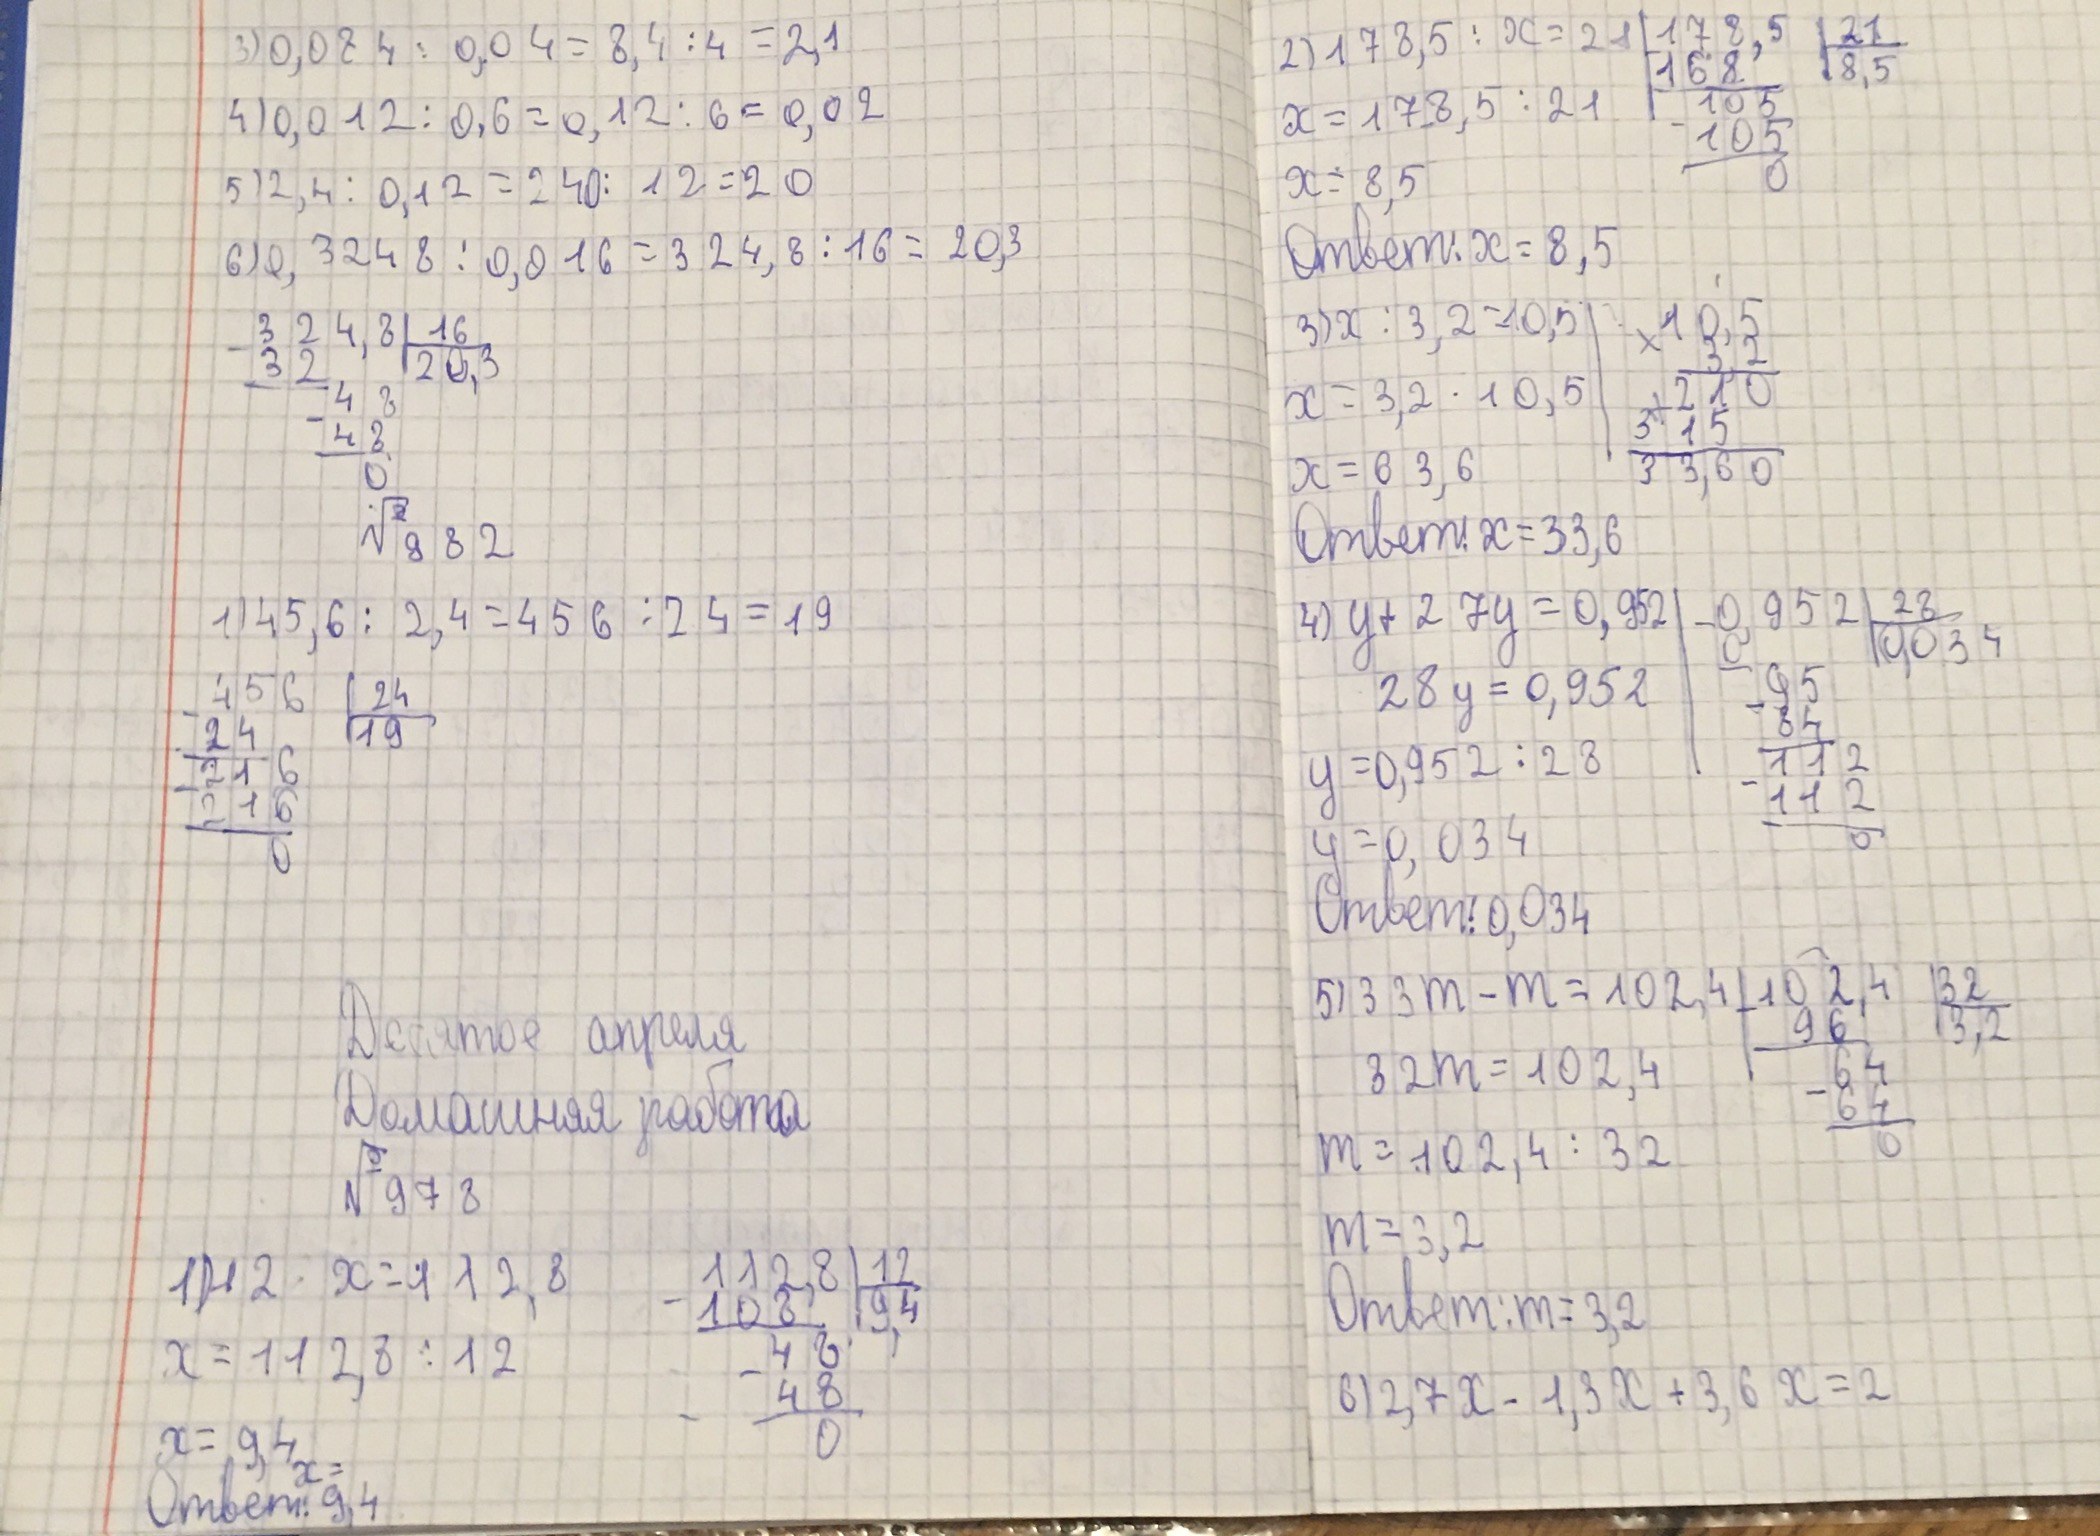 3) 0,084 : 0,04 = 8,4 : 4 = 2,1
4) 0,012 : 0,6 = 0,12 : 6 = 0,02
5) 2,4 : 0,12 = 240 : 12 = 20
6) 0,3248 : 0,016 = 324,8 : 16 = 20,3
- 324,8 | 16
32 | 20,3
- 48
48
0
№ 882
1) 45,6 : 2,4 = 456 : 24 = 19
- 456 | 24
24 | 19
- 216
216
0
Десятое апреля
Домашняя работа
№ 978
1) 12 · x = 112,8
x = 112,8 : 12
x = 9,4
Ответ: x = 9,4
- 112,8 | 12
108 | 9,4
- 48
48
0
2) 178,5 : x = 21
x = 178,5 : 21
x = 8,5
Ответ: x = 8,5
178,5 | 21
168 | 8,5
- 105
105
0
3) x : 3,2 = 10,5
x = 3,2 · 10,5
x = 33,6
Ответ: x = 33,6
× 10,5
3,2
+ 210
315
33,60
4) y + 27y = 0,952
28y = 0,952
y = 0,952 : 28
y = 0,034
Ответ: 0,034
- 0,952 | 28
0 | 0,034
- 95
84
- 112
112
0
5) 33m - m = 102,4
32m = 102,4
m = 102,4 : 32
m = 3,2
Ответ: m = 3,2
- 102,4 | 32
96 | 3,2
- 64
64
0
6) 2,7x - 1,3x + 3,6x = 2